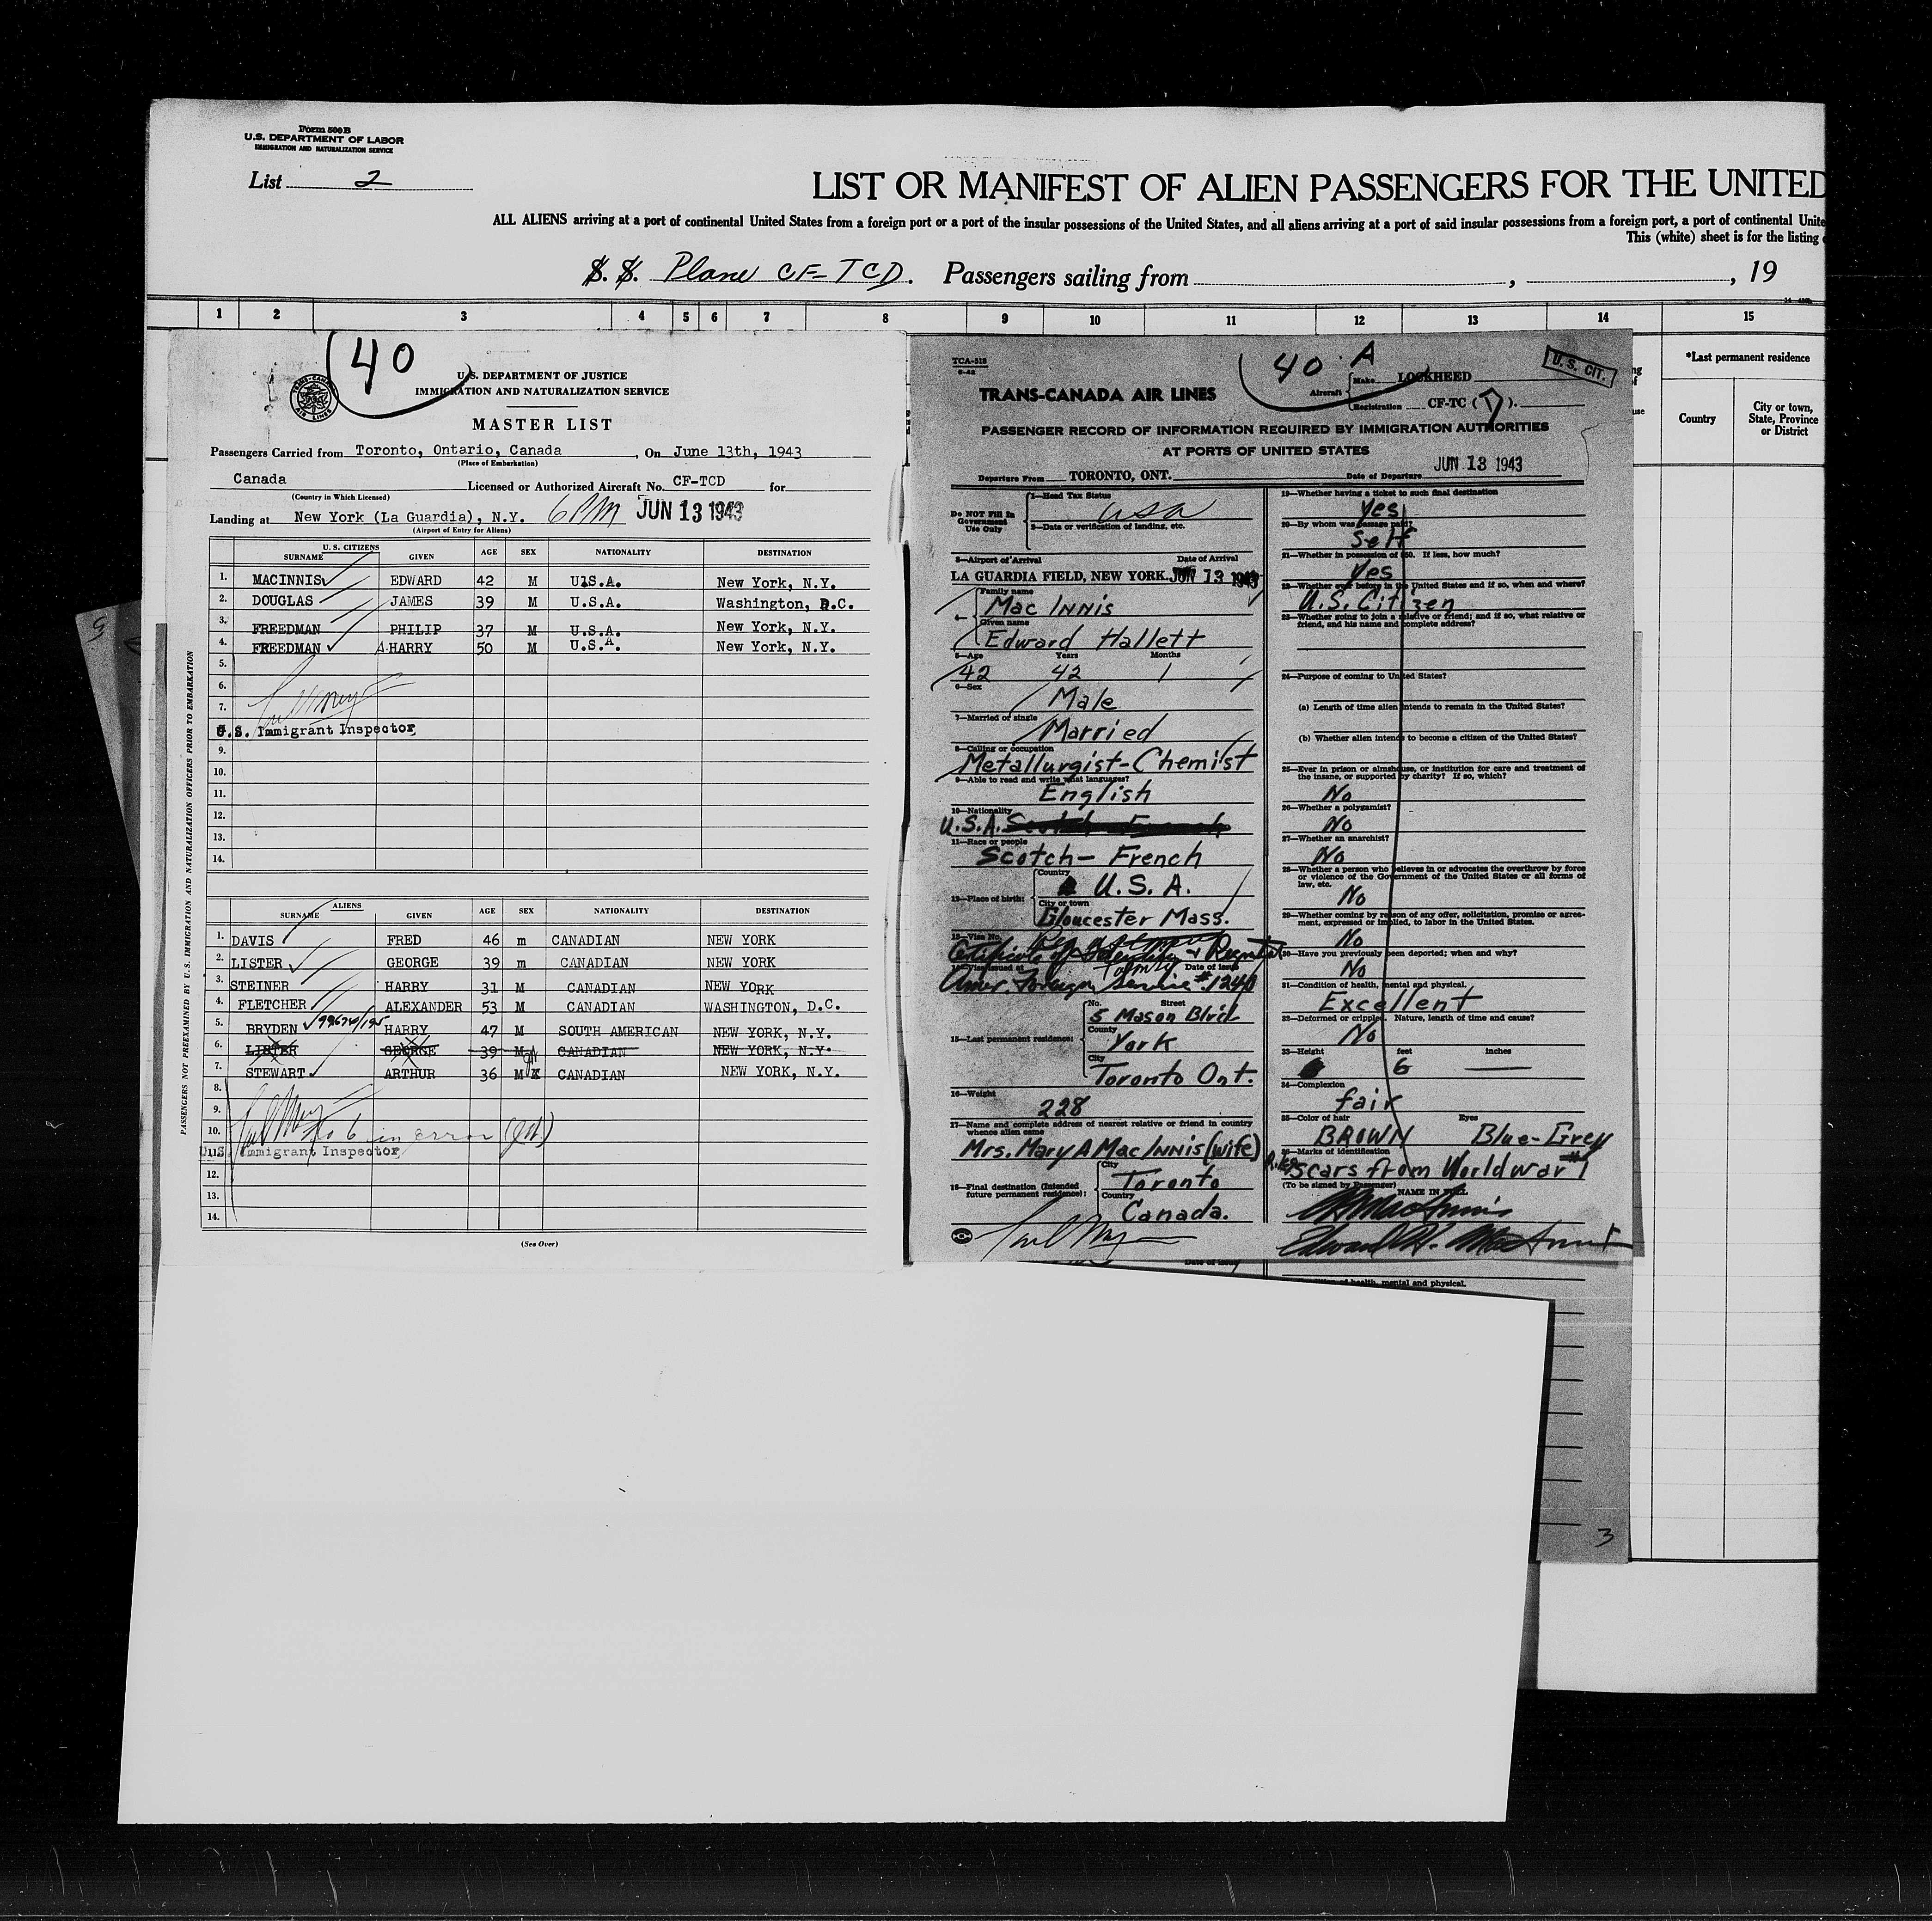 Form 500B
U.S. DEPARTMENT OF LABOR
IMMIGRATION AND NATURALIZATION SERVICE
List 2
LIST OR MANIFEST OF ALIEN PASSENGERS FOR THE UNITED
ALL ALIENS arriving at a port of continental United States from a foreign port or a port of the insular possessions of the United States, and all aliens arriving at a port of said insular possessions from a foreign port, a port of continental Unite
This (white) sheet is for the listing
S. S. Plane CF-TCD. Passengers sailing from , , 19
1 2 3 4 5 6 7 8 9 10 11 12 13 14 15
*Last permanent residence
Country
City or town, State, Province or District
40
U.S. DEPARTMENT OF JUSTICE
IMMIGRATION AND NATURALIZATION SERVICE
MASTER LIST
Passengers Carried from Toronto, Ontario, Canada, On June 13th, 1943
(Place of Embarkation)
Canada Licensed or Authorized Aircraft No. CF-TCD for
(Country in Which Licensed)
Landing at New York (La Guardia), N.Y. 6 PM JUN 13 1943
(Airport of Entry for Aliens)
PASSENGERS NOT PREEXAMINED BY U.S. IMMIGRATION AND NATURALIZATION OFFICERS PRIOR TO EMBARKATION
U. S. CITIZENS
SURNAME GIVEN AGE SEX NATIONALITY DESTINATION
1. MACINNIS EDWARD 42 M U.S.A. New York, N.Y.
2. DOUGLAS JAMES 39 M U.S.A. Washington, D.C.
3. FREEDMAN PHILIP 37 M U.S.A. New York, N.Y.
4. FREEDMAN HARRY 50 M U.S.A. New York, N.Y.
5.
6.
7.
U.S. Immigrant Inspector
9.
10.
11.
12.
13.
14.
ALIENS
SURNAME GIVEN AGE SEX NATIONALITY DESTINATION
1. DAVIS FRED 46 m CANADIAN NEW YORK
2. LISTER GEORGE 39 m CANADIAN NEW YORK
3. STEINER HARRY 31 M CANADIAN NEW YORK
4. FLETCHER ALEXANDER 53 M CANADIAN WASHINGTON, D.C.
5. BRYDEN HARRY 47 M SOUTH AMERICAN NEW YORK, N.Y.
6. LISTER GEORGE 39 M CANADIAN NEW YORK, N.Y.
7. STEWART ARTHUR 36 M CANADIAN NEW YORK, N.Y.
8.
9.
10. No 6 in error
11. U.S. Immigrant Inspector
12.
13.
14.
(See Over)
TCA-518
40 A
U. S. CIT.
TRANS-CANADA AIR LINES
Aircraft Make LOCKHEED
Registration CF-TC (D).
PASSENGER RECORD OF INFORMATION REQUIRED BY IMMIGRATION AUTHORITIES
AT PORTS OF UNITED STATES
Departure From TORONTO, ONT. Date of Departure JUN 13 1943
Do NOT Fill In Government Use Only
1—Head Tax Status
USA
2—Date or verification of landing, etc.
3—Airport of Arrival Date of Arrival
LA GUARDIA FIELD, NEW YORK. JUN 13 1943
4— Family name
Mac Innis
Given name
Edward Hallett
5—Age Years Months
42 42 1
6—Sex
Male
7—Married or single
Married
8—Calling or occupation
Metallurgist-Chemist
9—Able to read and write what languages?
English
10—Nationality
U.S.A.
11—Race or people
Scotch-French
12—Place of birth: Country
U.S.A.
City or town
Gloucester Mass.
13—Visa No.
Certificate of Identity
14—Visa issued at Date of issue
Amer. Foreign Service #1240
15—Last permanent residence: No. Street
5 Mason Blvd
County
York
City
Toronto Ont.
16—Weight
228
17—Name and complete address of nearest relative or friend in country whence alien came
Mrs. Mary A MacInnis (wife)
18—Final destination (Intended future permanent residence): City
Toronto
Country
Canada.
19—Whether having a ticket to such final destination
Yes
20—By whom was passage paid?
Self
21—Whether in possession of $50. If less, how much?
Yes
22—Whether ever before in the United States and if so, when and where?
U.S. Citizen
23—Whether going to join a relative or friend; and if so, what relative or friend, and his name and complete address?
24—Purpose of coming to United States?
(a) Length of time alien intends to remain in the United States?
(b) Whether alien intends to become a citizen of the United States?
25—Ever in prison or almshouse, or institution for care and treatment of the insane, or supported by charity? If so, which?
No
26—Whether a polygamist?
No
27—Whether an anarchist?
No
28—Whether a person who believes in or advocates the overthrow by force or violence of the Government of the United States or all forms of law, etc.
No
29—Whether coming by reason of any offer, solicitation, promise or agreement, expressed or implied, to labor in the United States.
No
30—Have you previously been deported; when and why?
No
31—Condition of health, mental and physical.
Excellent
32—Deformed or crippled. Nature, length of time and cause?
No
33—Height feet inches
6
34—Complexion
fair
35—Color of hair Eyes
BROWN Blue-Grey
36—Marks of identification
scars from World war #1
(To be signed by Passenger) NAME IN FULL
Edward H. MacInnis
Date of issue
health, mental and physical.
3